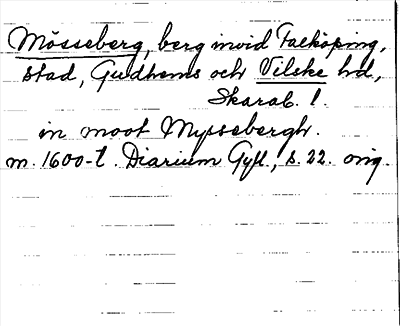 Mösseberg, berg invid Falköping,
stad, Gudhems och Vilske hd,
Skarab. l.
in moot Myssebergh.
m. 1600-t. Diarium Gyll., s. 22. orig.